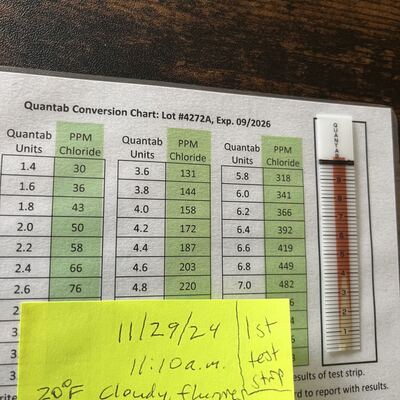 Quantab Conversion Chart: Lot #4272A, Exp. 09/2026
Quantab Units PPM Chloride Quantab Units PPM Chloride Quantab Units PPM Chloride
1.4 30 3.6 131 5.8 318
1.6 36 3.8 144 6.0 341
1.8 43 4.0 158 6.2 366
2.0 50 4.2 172 6.4 392
2.2 58 4.4 187 6.6 419
2.4 66 4.6 203 6.8 449
2.6 76 4.8 220 7.0 482
QUANTAB
9
8
7
6
5
4
3
2
1
11/29/24
11:10 a.m.
20°F Cloudy,
1st
test
strip
results of test strip.
to report with results.